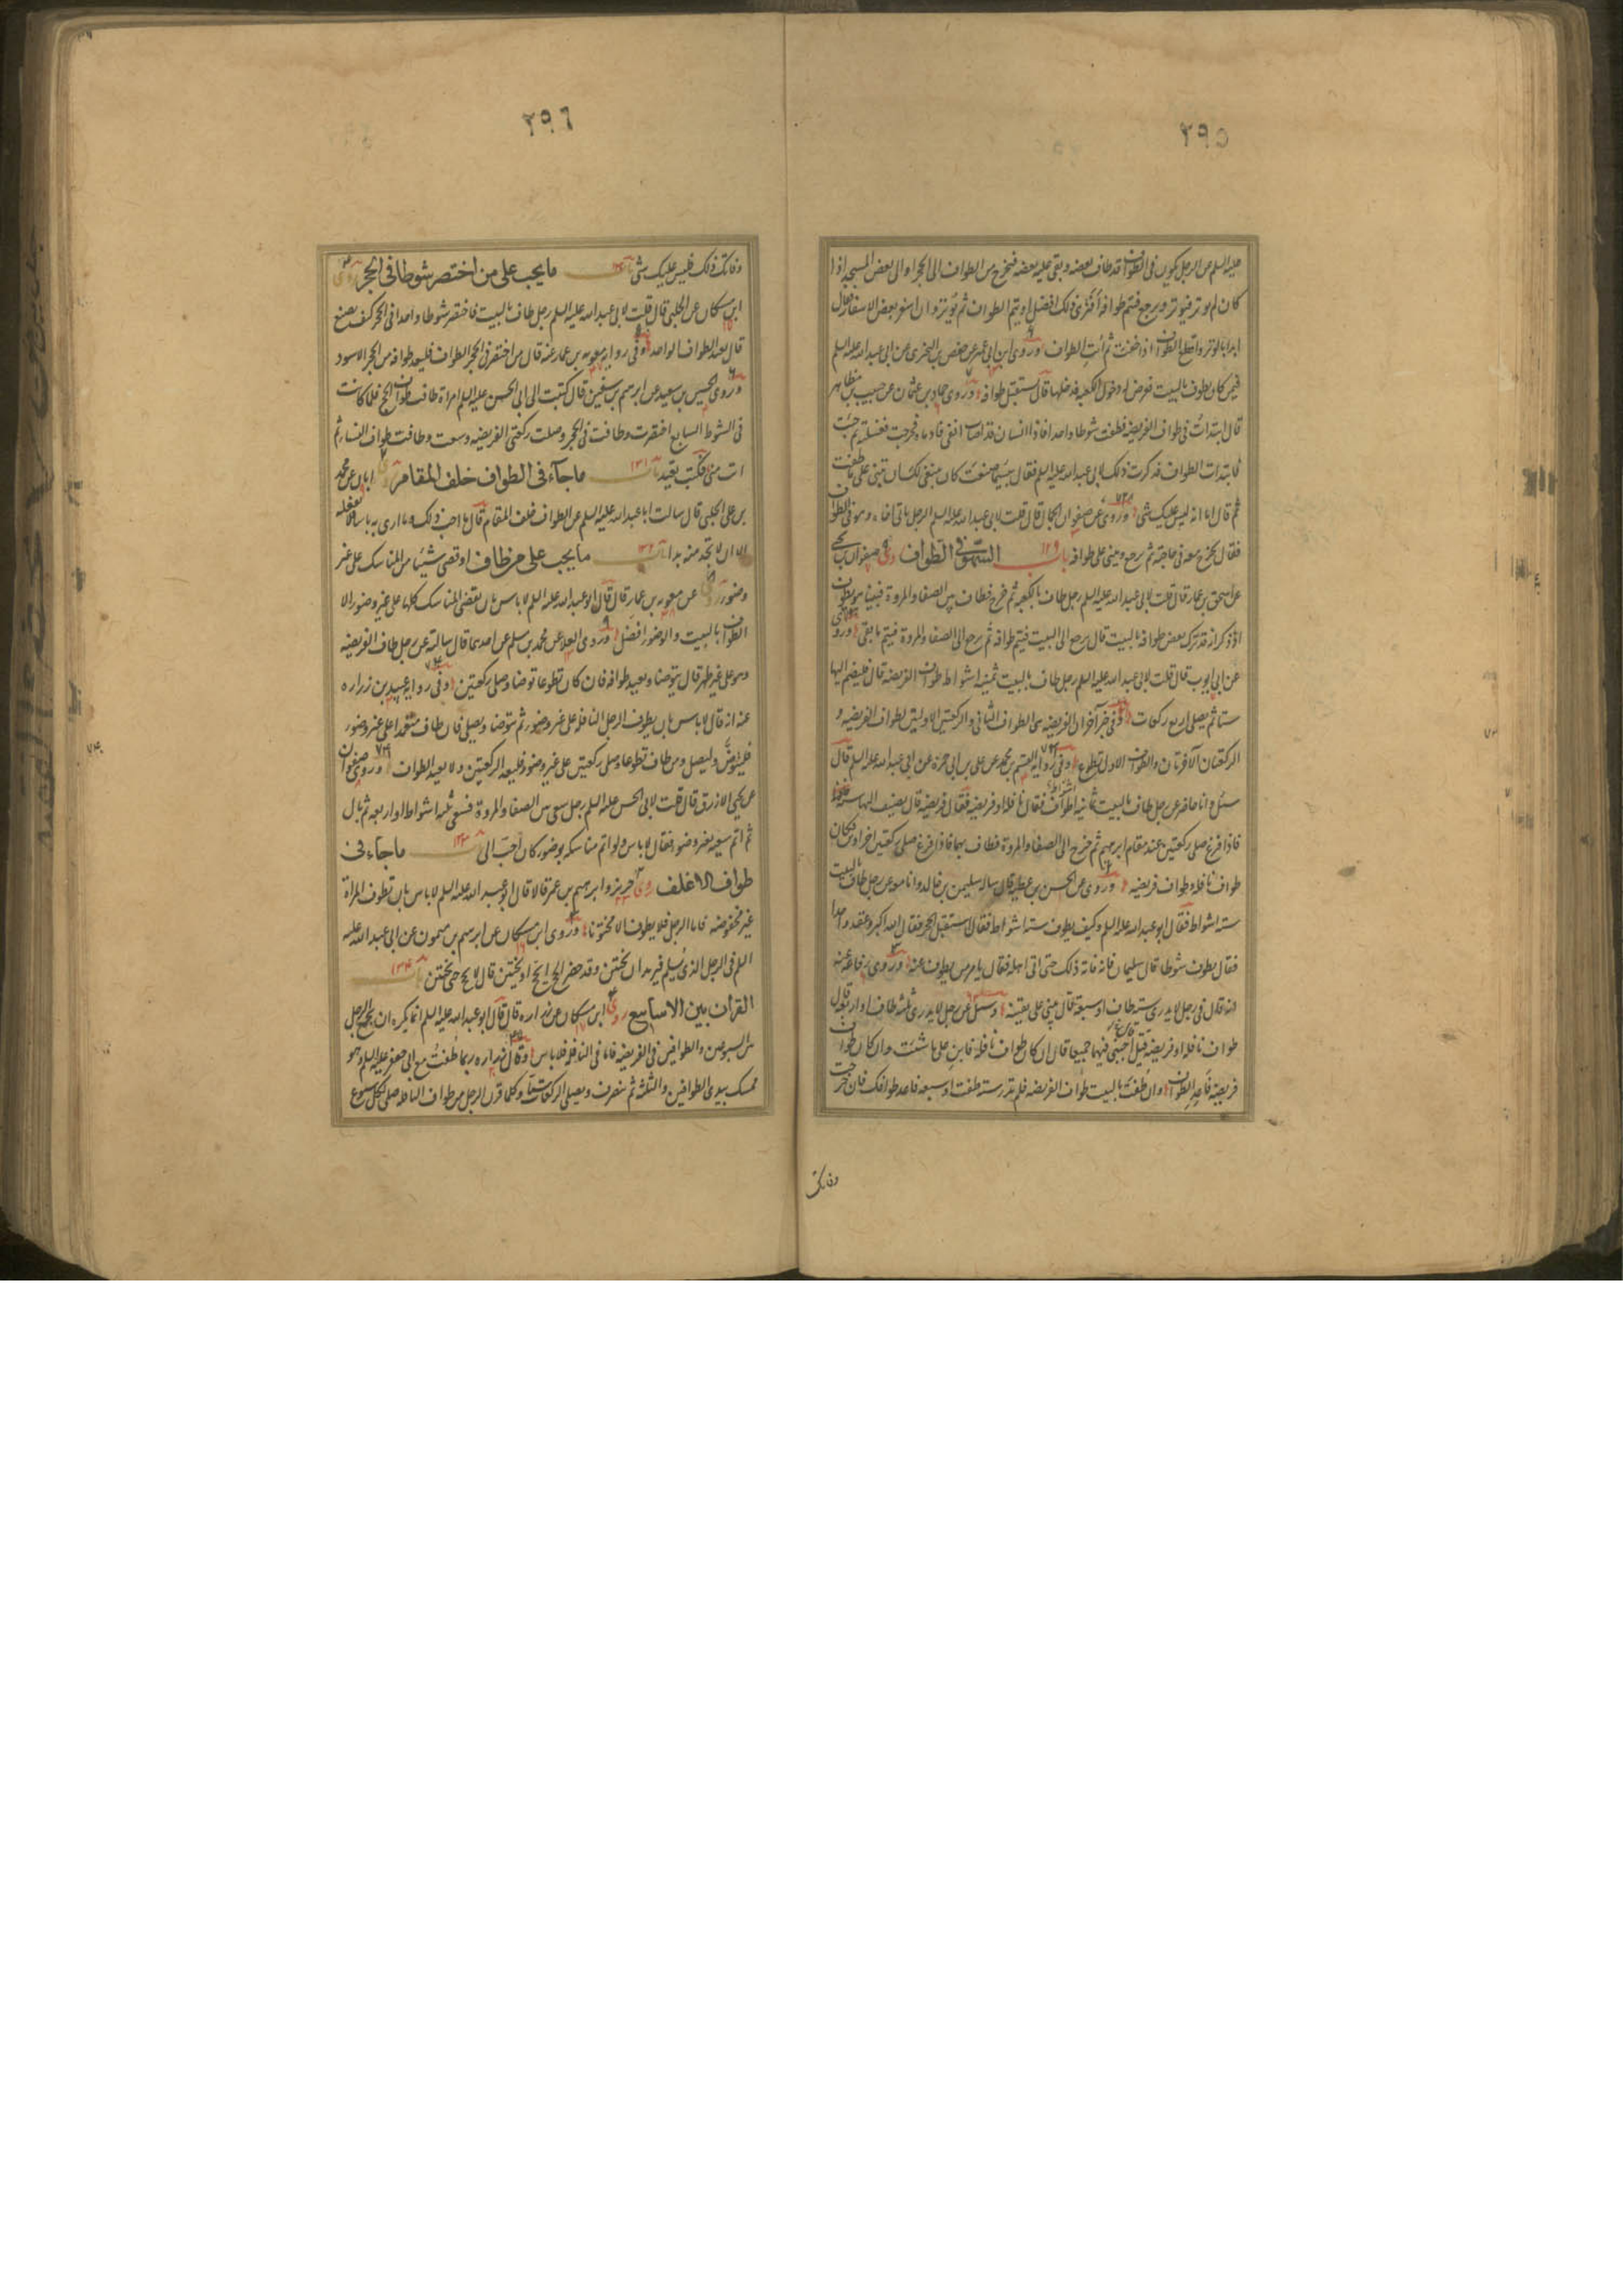 ٢٩٥
عليه السلم عن الرجل يكون في الطواف قد طاف بعضه وبقي عليه بعضه فيخرج من الطواف الى الحجر او الى بعض المسجد اذا
كان لم يوتر فيوتر ويرجع فيتم طوافه أفترى ذلك افضل او يتم الطواف ثم يوتر وان اسفر بعض الاسفار قال
ابدا بالوتر واقطع الطواف اذا خفت ثم ائت الطواف وروى ابن ابي عمير عن حفص بن البختري عن ابي عبد الله عليه السلم
فيمن كان يطوف بالبيت فعرض له دخول الكعبة فدخلها قال يستقبل طوافه وروى حماد بن عثمان عن حبيب بن مظاهر
قال ابتدأت في طواف الفريضة فطفت شوطا واحدا فاذا انسان قد اصاب انفي فادماه فخرجت فغسلته ثم جئت
فابتدات الطواف فذكرت ذلك لابي عبد الله عليه السلم فقال بئسما صنعت كان ينبغي لك ان تبني على ما طفت
ثم قال اما انه ليس عليك شئ وروى عن صفوان الجمال قال قلت لابي عبد الله عليه السلم الرجل ياتي اخاه وهو في الطواف
فقال يخرج معه في حاجته ثم يرجع ويبني على طوافه باب ١٢٩ السهو في الطواف روى صفوان بن يحيى
عن اسحق بن عمار قال قلت لابي عبد الله عليه السلم رجل طاف بالكعبة ثم خرج فطاف بين الصفا والمروة فبينا هو يطوف
اذ ذكر انه قد ترك بعض طوافه بالبيت قال يرجع الى البيت فيتم طوافه ثم يرجع الى الصفا والمروة فيتم ما بقي وروى
عن ابي ايوب قال قلت لابي عبد الله عليه السلم رجل طاف بالبيت ثمنية اشواط طواف الفريضة قال فليضم اليها
ستا ثم يصلي اربع ركعات وفي خبر آخر ان الفريضة هي الطواف الثاني والركعتين الاوليين لطواف الفريضة و
الركعتان الآخرتان والطواف الاول تطوع وفي رواية القسم بن محمد عن علي بن ابي حمزة عن ابي عبد الله عليه السلم قال
سئل وانا حاضر عن رجل طاف بالبيت ثمانية اشواط فقال نافلة او فريضة فقال فريضة قال يضيف اليها ستة
فاذا فرغ صلى ركعتين عند مقام ابرهيم ثم خرج الى الصفا والمروة فطاف بهما فاذا فرغ صلى ركعتين اخراوين فكان
طواف نافلة وطواف فريضة وروى عن الحسن بن عطية قال ساله سليمن بن خالد وانا معه عن رجل طاف بالبيت
ستة اشواط فقال ابو عبد الله عليه السلم وكيف يطوف ستة اشواط فقال استقبل الحجر فقال الله اكبر وعقد واحدا
فقال يطوف شوطا قال سليمان فانه فاته ذلك حتى اتى اهله فقال يامر من يطوف عنه وروى رفاعة عنه
انه قال في رجل لا يدري ستة طاف او سبعة قال يبني على يقينه وسئل عن رجل لا يدري ثلثة طاف او اربعة قال
طواف نافلة او فريضة قيل اجبني فيهما جميعا قال ان كان طواف نافلة فابن على ما شئت وان كان طواف
فريضة فاعد الطواف وان طفت بالبيت طواف الفريضة فلم تدر ستة طفت او سبعة فاعد طوافك فان خرجت
وفاتك
٢٩٦
وفاتك ذلك فليس عليك شئ باب ما يجب على من اختصر شوطا في الحجر روى
ابن مسكان عن الحلبي قال قلت لابي عبد الله عليه السلم رجل طاف بالبيت فاختصر شوطا واحدا في الحجر كيف يصنع
قال يعيد الطواف الواحد وفي رواية معوية بن عمار عنه قال من اختصر في الحجر الطواف فليعد طوافه من الحجر الاسود
وروى الحسين بن سعيد عن ابرهيم بن سفين قال كتبت الى ابي الحسن عليه السلم امراة طافت طواف الحج فلما كانت
في الشوط السابع اختصرت وطافت في الحجر وصلت ركعتي الفريضة وسعت وطافت طواف النساء ثم
اتت منى فكتب تعيد باب ١٣١ ما جآء في الطواف خلف المقام روى ابان عن محمد
بن علي الحلبي قال سالت ابا عبد الله عليه السلم عن الطواف خلف المقام قال ما احب ذلك وما ارى به باسا فلا تفعله
الا ان لا تجد منه بدا باب ١٣٢ ما يجب على من طاف او قضى شيئا من المناسك على غير
وضوء روى عن معوية بن عمار قال قال ابو عبد الله عليه السلم لا باس بان يقضي المناسك كلها على غير وضوء الا
الطواف بالبيت والوضوء افضل وروى العلا عن محمد بن مسلم عن احدهما قال سالته عن رجل طاف الفريضة
وهو على غير طهر قال يتوضا ويعيد طوافه فان كان تطوعا توضا وصلى ركعتين وفي رواية عبيد بن زراره
عنه انه قال لا باس بان يطوف الرجل النافلة على غير وضوء ثم يتوضا ويصلي فان طاف متعمدا على غير وضوء
فليتوضّ وليصل ومن طاف تطوعا وصلى ركعتين على غير وضوء فليعد الركعتين ولا يعيد الطواف وروى صفوان
عن يحيى الازرق قال قلت لابي الحسن عليه السلم رجل سعى بين الصفا والمروة فسعى ثلثة اشواط او اربعة ثم بال
ثم اتم سعيه بغير وضوء فقال لا باس ولو اتم مناسكه بوضوء كان احب الى باب ١٣٣ ما جاء في
طواف الاغلف روى حريز وابرهيم بن عمر قالا قال ابو عبد الله عليه السلم لا باس بان تطوف المراة
غير مخفوضة فاما الرجل فلا يطوف الا مختونا وروى ابن مسكان عن ابرهيم بن ميمون عن ابي عبد الله عليه
السلم في الرجل الذي يسلم فيريد ان يختتن وقد حضر الحج ايحج او يختتن قال لا يحج حتى يختتن باب ١٣٤
القران بين الاسابيع روى ابن مسكان عن زراره قال قال ابو عبد الله عليه السلم انما يكره ان يجمع الرجل
بين السبوعين والطوافين في الفريضة فاما في النافلة فلا باس وقال زراره ربما طفت مع ابي جعفر عليه السلم وهو
ممسك بيدي الطوافين والثلثة ثم ينصرف ويصلي الركعات ستا وكلما قرن الرجل بين طواف النافلة صلى لكل سبوع